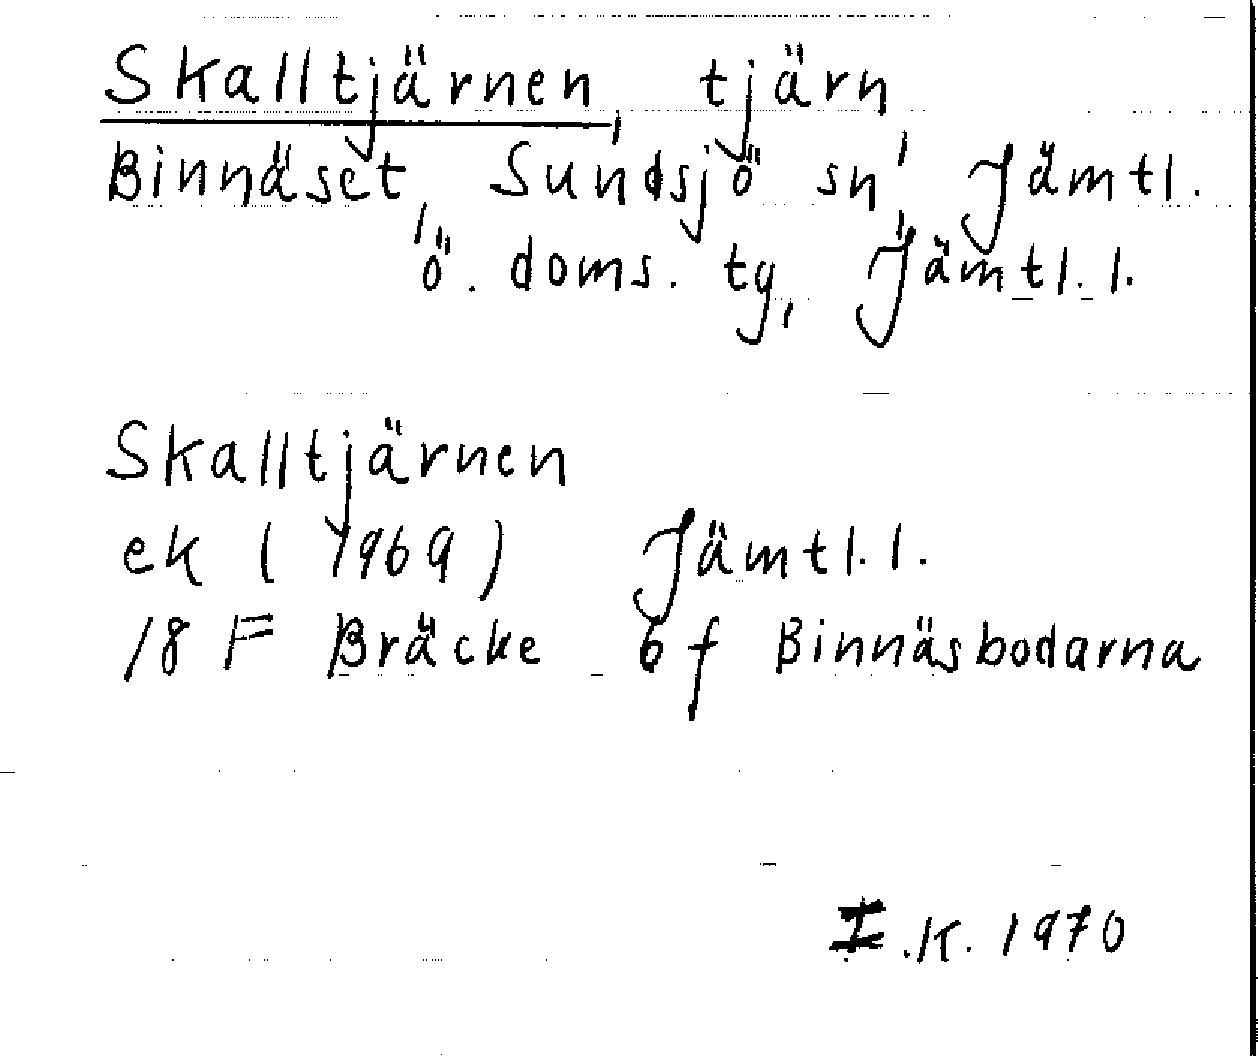 Skalltjärnen, tjärn,
Binnäset, Sundsjö sn, Jämtl.
ö. doms. tg, Jämtl. l.
Skalltjärnen
ek (1969) Jämtl. l.
18 F Bräcke 6 f Binnäsbodarna
I.K. 1970